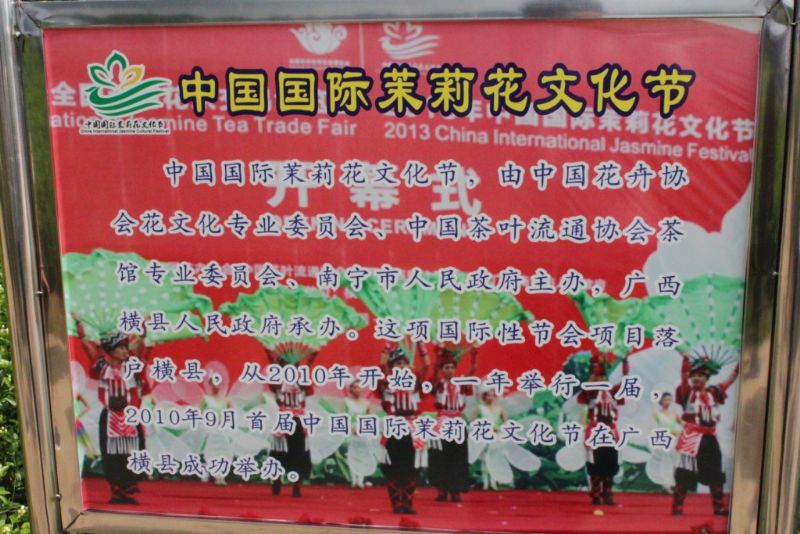 中国国际茉莉花文化节
中国国际茉莉花文化节
China International Jasmine Cultural Festival
Tea Trade Fair
2013 China International Jasmine Festival
开幕式
中国国际茉莉花文化节，由中国花卉协
会花文化专业委员会、中国茶叶流通协会茶
馆专业委员会、南宁市人民政府主办，广西
横县人民政府承办。这项国际性节会项目落
户横县，从2010年开始，一年举行一届，
2010年9月首届中国国际茉莉花文化节在广西
横县成功举办。